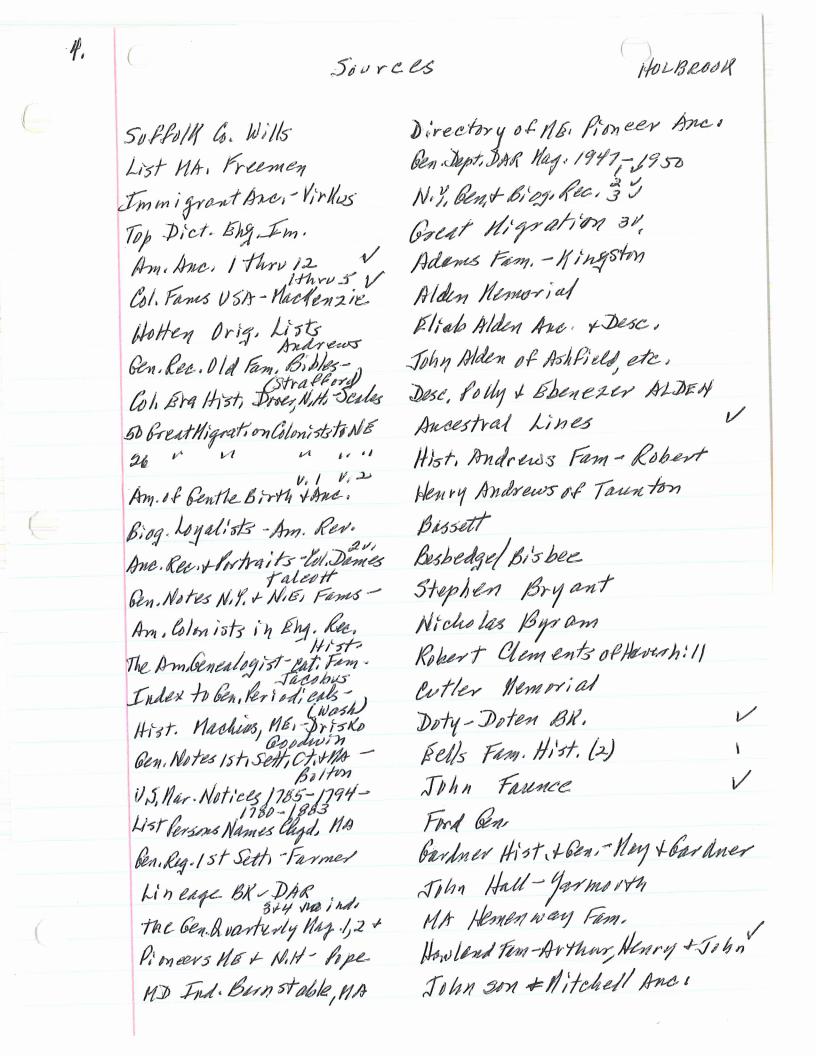 4.
Sources
HOLBROOK
Suffolk Co. Wills
List MA. Freemen
Immigrant Anc. - Virkus
Top Dict. Eng. Im.
Am. Anc. 1 thru 12 ✓
1 thru 5 ✓
Col. Fams USA - MacKenzie
Hotten Orig. Lists
Andrews
Gen. Rec. Old Fam. Bibles -
(Strafford)
Col. Era Hist. Dover, N.H. - Scales
50 Great Migration Colonists to NE
26 " " " " "
v. 1 v. 2
Am. of Gentle Birth & Anc.
Biog. Loyalists - Am. Rev.
2 v.
Anc. Rec. & Portraits - Col. Dames
Talcott
Gen. Notes N.Y. & N.E. Fams -
Am. Colonists in Eng. Rec.
Hist.
The Am Genealogist - Cat. Fam.
Jacobus
Index to Gen. Periodicals -
(Wash)
Hist. Machias, ME. - Drisko
Goodwin
Gen. Notes 1st. Sett, Ct. & MA -
Bolton
U.S. Mar. Notices 1785-1794 -
1780-1883
List Persons Names Chgd. MA
Gen. Reg. 1st Sett - Farmer
Lineage BK - DAR
3 & 4 no ind.
The Gen. Quarterly Mag. 1, 2 &
Pioneers ME & N.H - Pope
MD Ind. Barnstable, MA
Directory of ME. Pioneer Anc.
Gen. Dept. DAR Mag. 1947 - 1950
N.Y. Gen. & Biog. Rec.
Great Migration 3 v.
Adams Fam. - Kingston
Alden Memorial
Eliab Alden Anc. & Desc.
John Alden of Ashfield, etc.
Desc. Polly & Ebenezer ALDEN
Ancestral Lines ✓
Hist. Andrews Fam - Robert
Henry Andrews of Taunton
Bassett
Besbedge/Bisbee
Stephen Bryant
Nicholas Byram
Robert Clements of Haverhill
Cutler Memorial
Doty - Doten BK. ✓
Eells Fam. Hist. (2)
John Faunce ✓
Ford Gen
Gardner Hist. & Gen. - May & Gardner
John Hall - Yarmouth
MA Hemenway Fam.
Howland Fam - Arthur, Henry & John ✓
Johnson & Mitchell Anc.